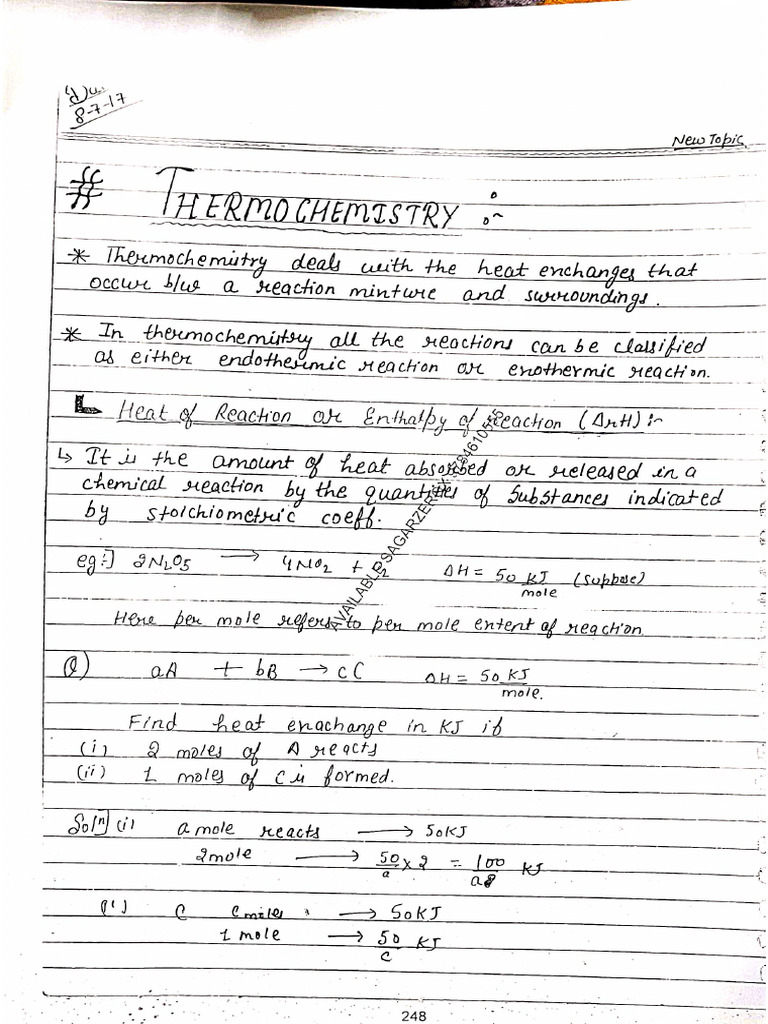 8-7-17
New Topic
# THERMOCHEMISTRY :~
* Thermochemistry deals with the heat enchanges that
occur b/w a reaction minture and surroundings.
* In thermochemistry all the reactions can be classified
as either endothermic reaction or enothermic reaction.
Heat of Reaction or Enthalpy of Reaction (ΔrH) :-
↳ It is the amount of heat absorbed or released in a
chemical reaction by the quantities of substances indicated
by stoichiometric coeff.
eg:-] 2N2O5 ⟶ 4NO2 + O2 ΔH = 50 KJ/mole (suppose)
Here per mole refers to per mole entent of reaction.
Q) aA + bB → cC ΔH = 50 KJ/mole.
Find heat enachange in KJ if
(i) 2 moles of A reacts
(ii) 1 moles of C is formed.
Soln] (i) a mole reacts ⟶ 50KJ
2mole ⟶ 50/a × 2 = 100/a KJ
(ii) C c moles ⟶ 50KJ
1 mole ⟶ 50/c KJ
248